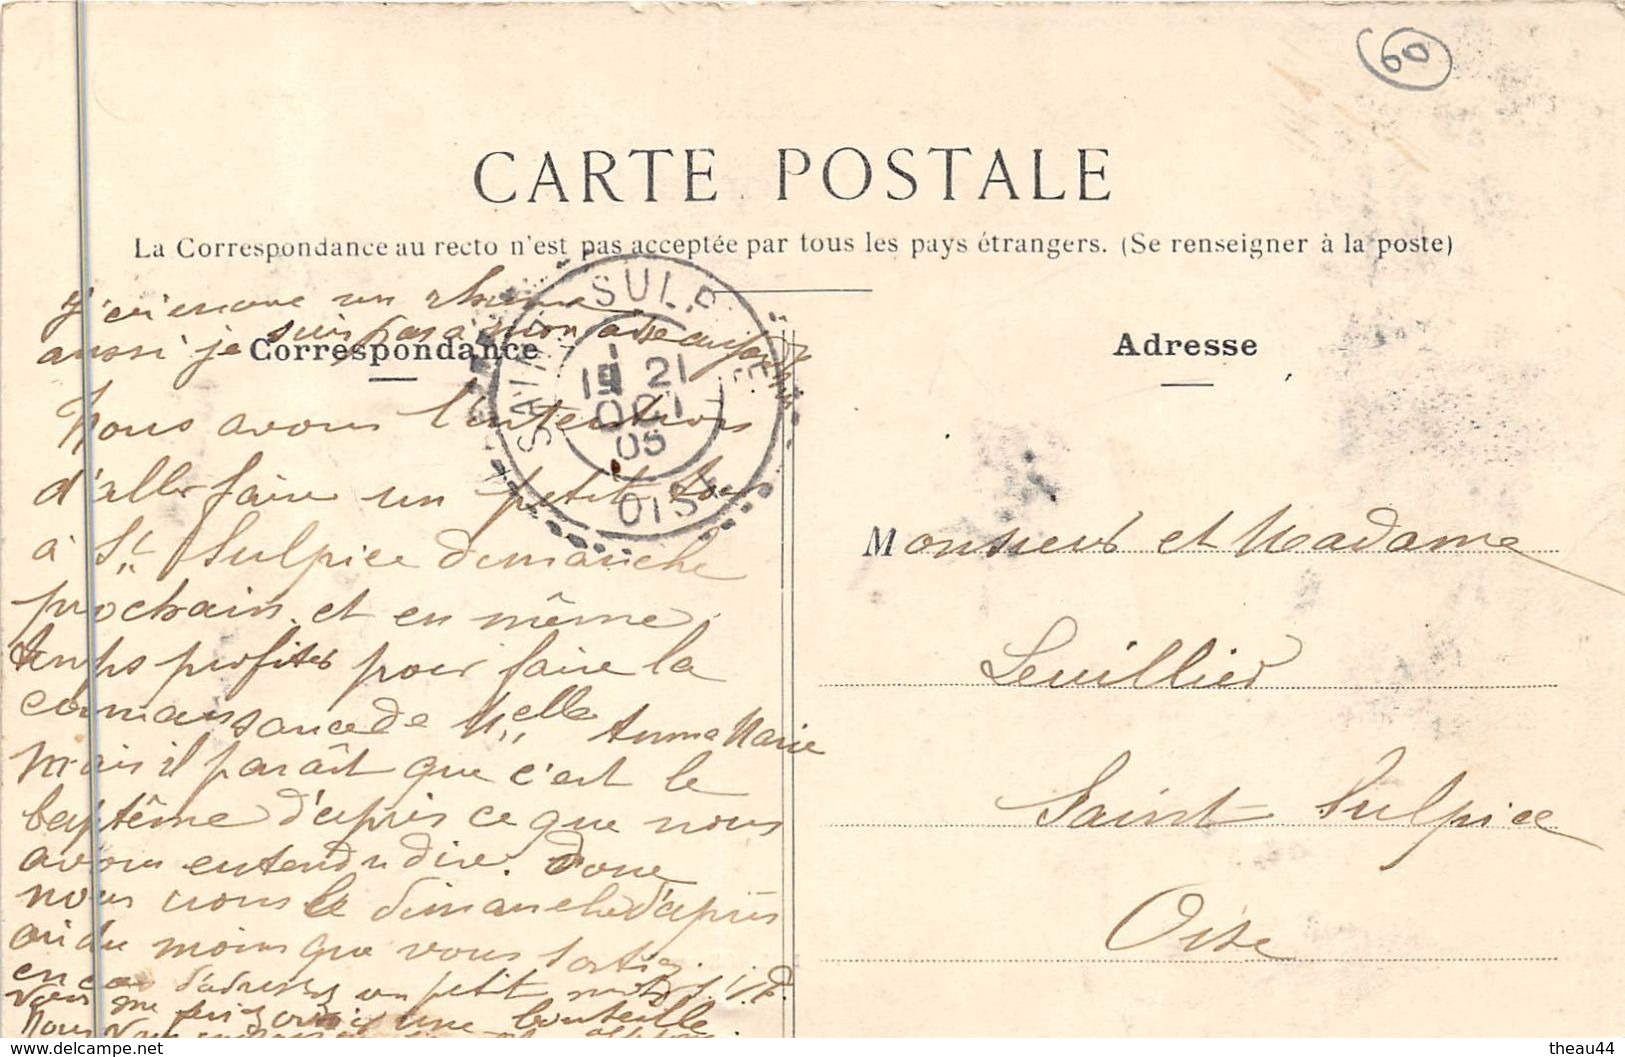 60
CARTE POSTALE
La Correspondance au recto n'est pas acceptée par tous les pays étrangers. (Se renseigner à la poste)
J'ai encore un rhume
aussi je suis pas à mon aise aujourd'hui
Correspondance
Adresse
SAINT SULPICE
19 21
OCT
05
OISE
Nous avons l'intention
d'aller faire un petit tour
à St Sulpice dimanche
prochain et en même
temps profiter pour faire la
connaissance de Melle Anna Marie
mais il paraît que c'est le
baptême d'après ce que nous
avons entendu dire. Donc
nous irons le dimanche d'après
ou du moins que vous sortiez
en ce cas d'adressez un petit mot S.V.P.
une bouteille
Nous vous
Monsieur et Madame
Leuillier
Saint Sulpice
Oise
www.delcampe.net
theau44